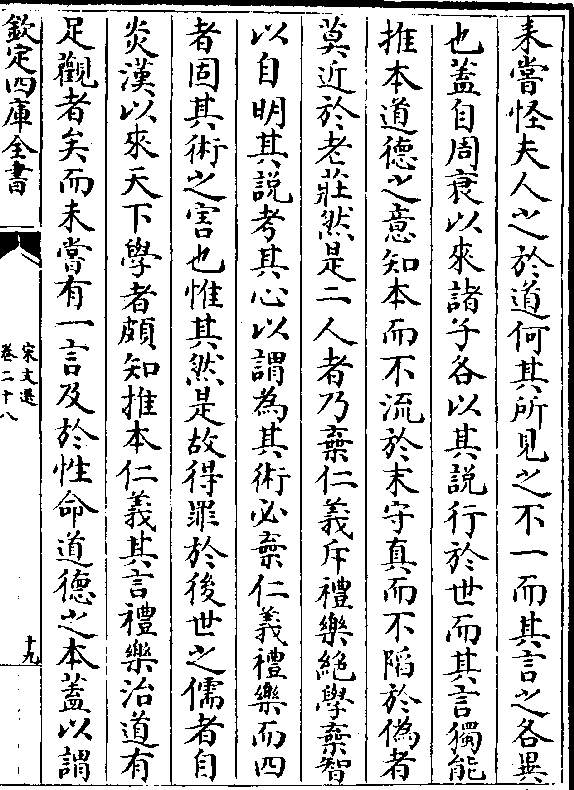 耒嘗怪夫人之於道何其所見之不一而其言之各異
也蓋自周衰以來諸子各以其說行於世而其言獨能
推本道德之意知本而不流於末守真而不陷於偽者
莫近於老莊然是二人者乃棄仁義斥禮樂絶學棄智
以自明其說考其心以謂為其術必棄仁義禮樂而四
者固其術之害也惟其然是故得罪於後世之儒者自
炎漢以來天下學者頗知推本仁義其言禮樂治道有
足觀者矣而未嘗有一言及於性命道德之本蓋以謂
欽定四庫全書
宋文選
卷二十八
十九